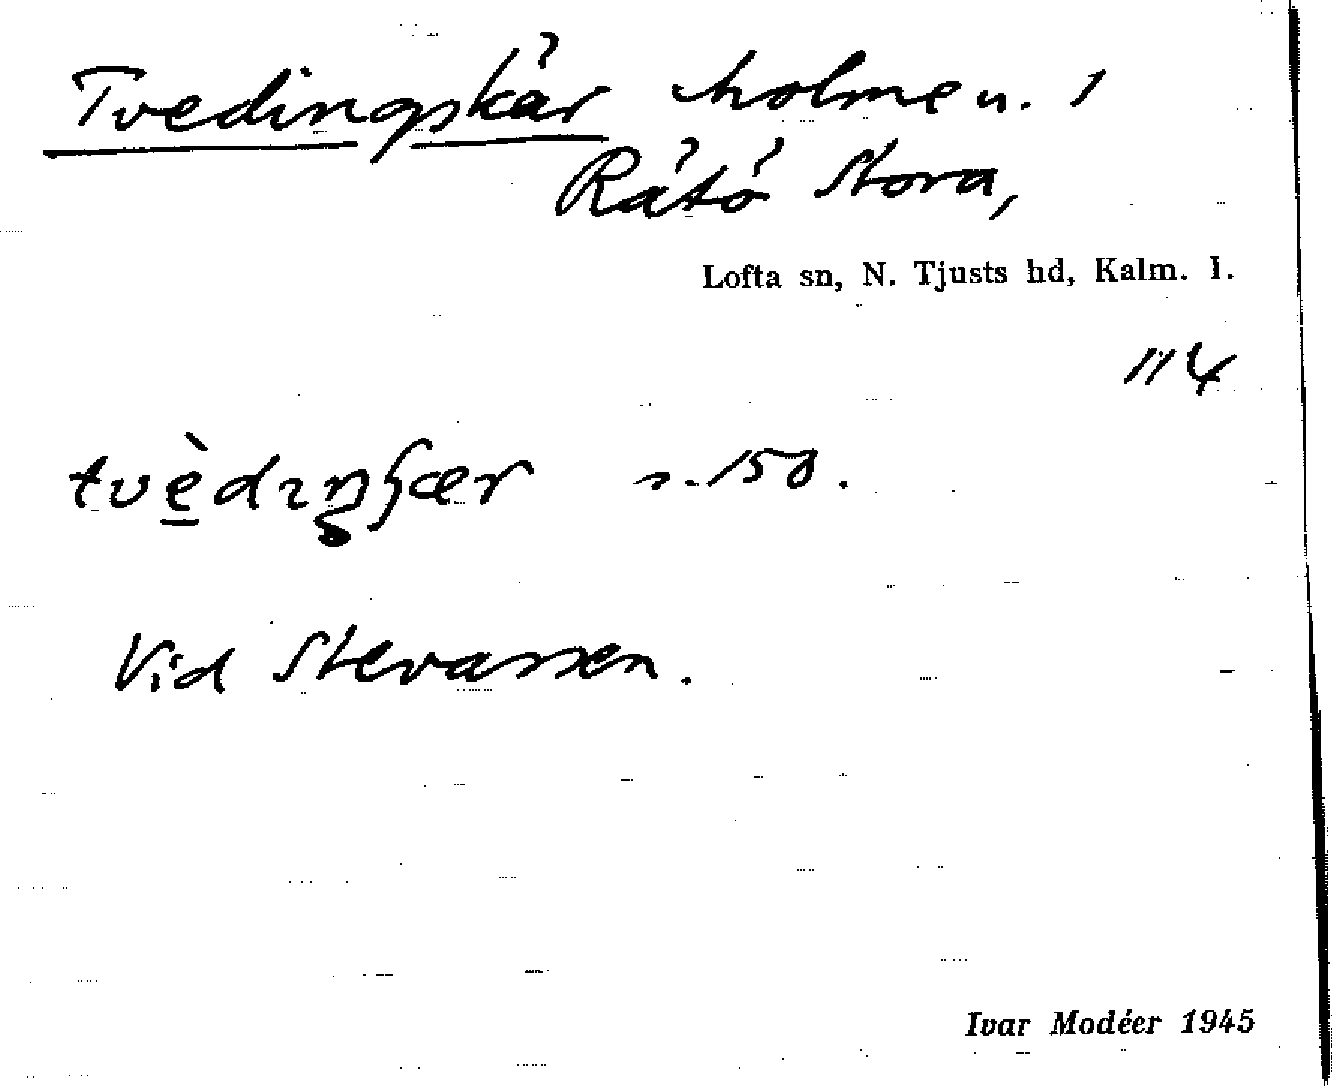 Tvedingskär holme u. 1
Rätö Stora,
Lofta sn, N. Tjusts hd, Kalm. l.
114
s. 150.
Vid Stevassen.
Ivar Modéer 1945